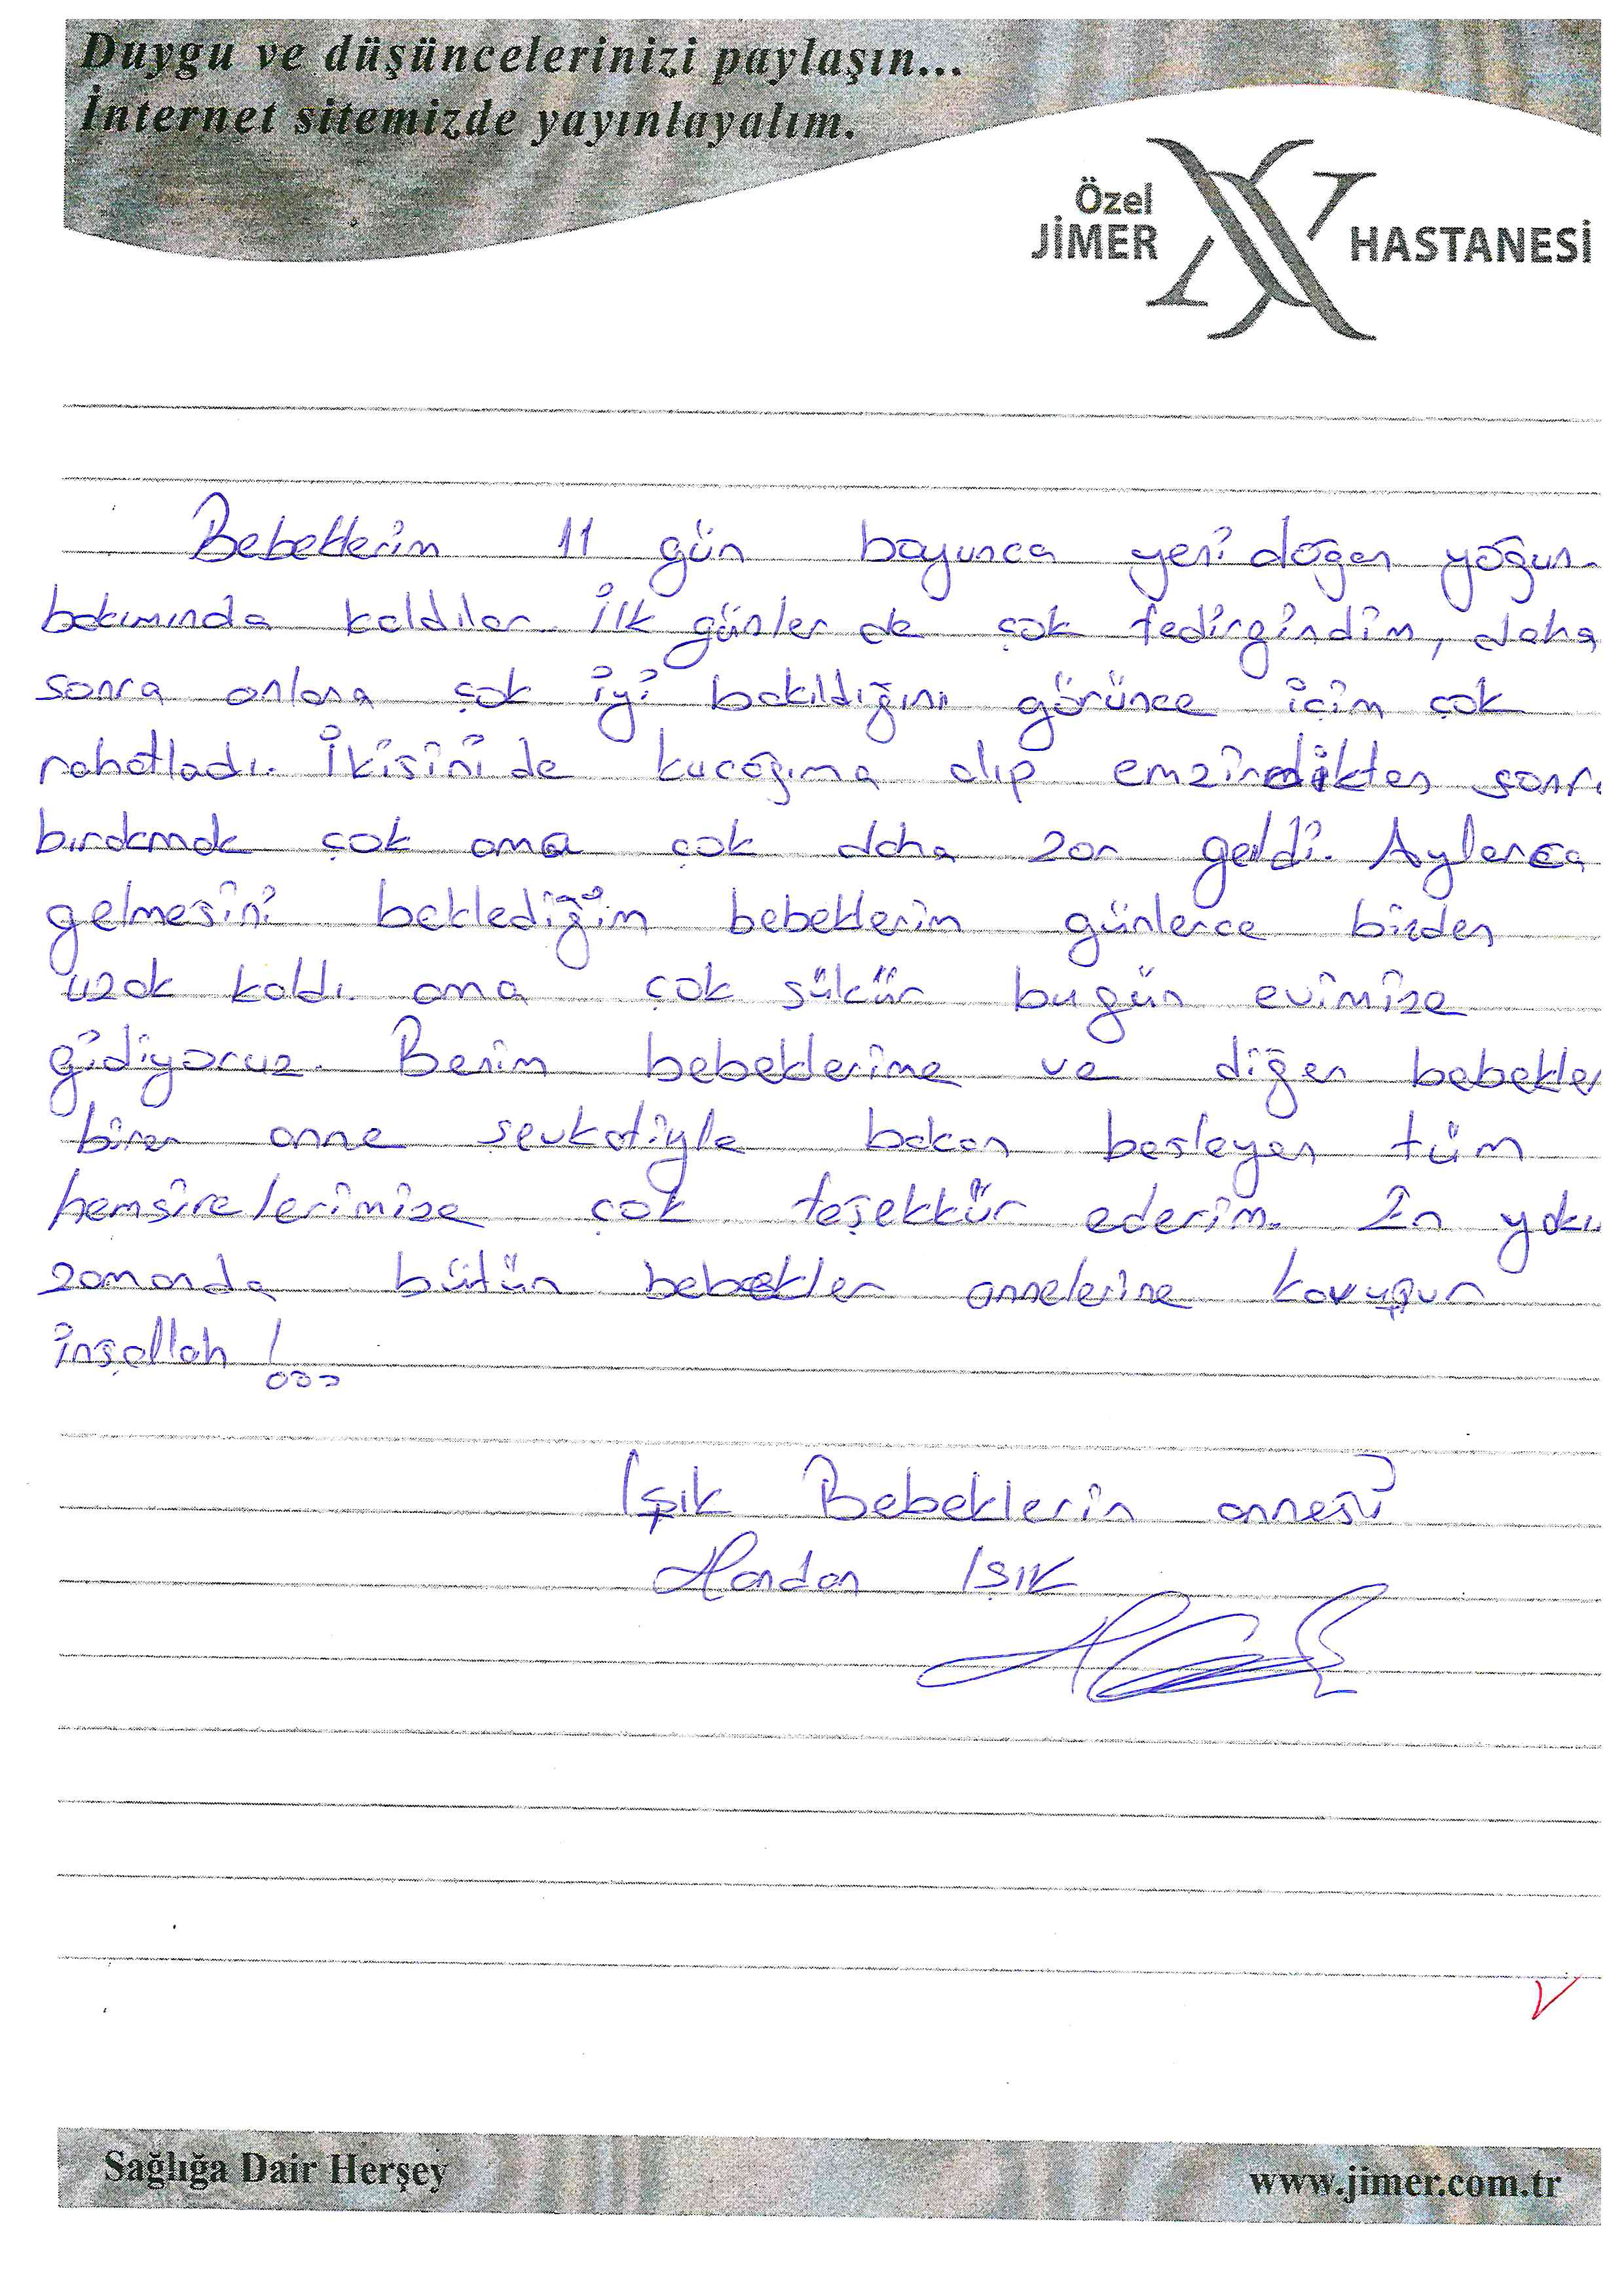 Duygu ve düşüncelerinizi paylaşın...
İnternet sitemizde yayınlayalım.
Özel
JİMER HASTANESİ
Bebeklerim 11 gün boyunca yeni doğan yoğun
bakımında kaldılar. İlk günler de çok tedirgindim, daha
sonra onlara çok iyi bakıldığını görünce içim çok
rahatladı. İkisini de kucağıma alıp emzirdikten sonra
bırakmak çok ama çok daha zor geldi. Aylarca
gelmesini beklediğim bebeklerim günlerce bizden
uzak kaldı. ama çok şükür bugün evimize
gidiyoruz. Benim bebeklerime ve diğer bebekler
birer anne şevkatiyle bakan besleyen tüm
hemşirelerimize çok teşekkür ederim. En yakı
zamanda bütün bebekler annelerine kavuşur
inşallah !...
Işık Bebeklerin annesi
Handan IŞIK
Sağlığa Dair Herşey
www.jimer.com.tr